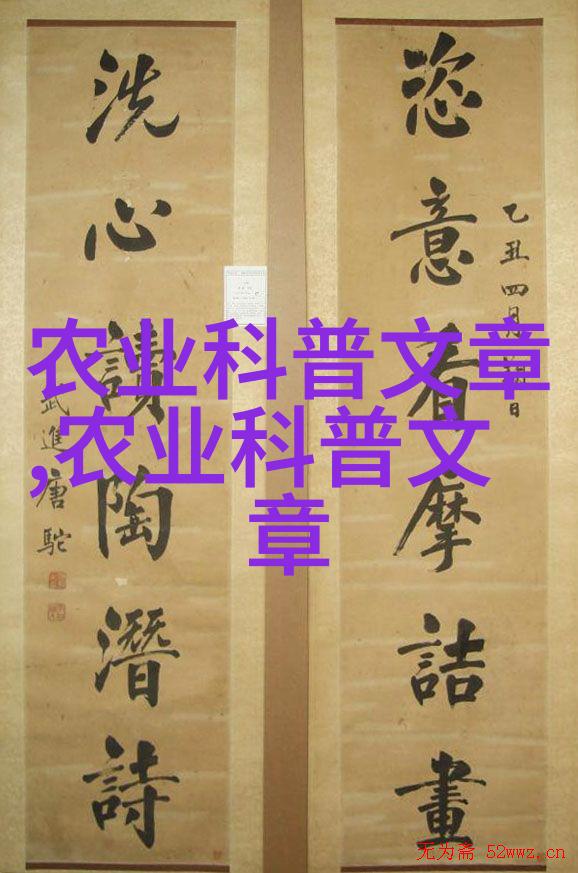 恣意看摩詰畫
乙丑四月日
洗心讀陶潛詩
武進唐駝
农业科普文章
,农业科普文
章
无为斋 52wwz.cn